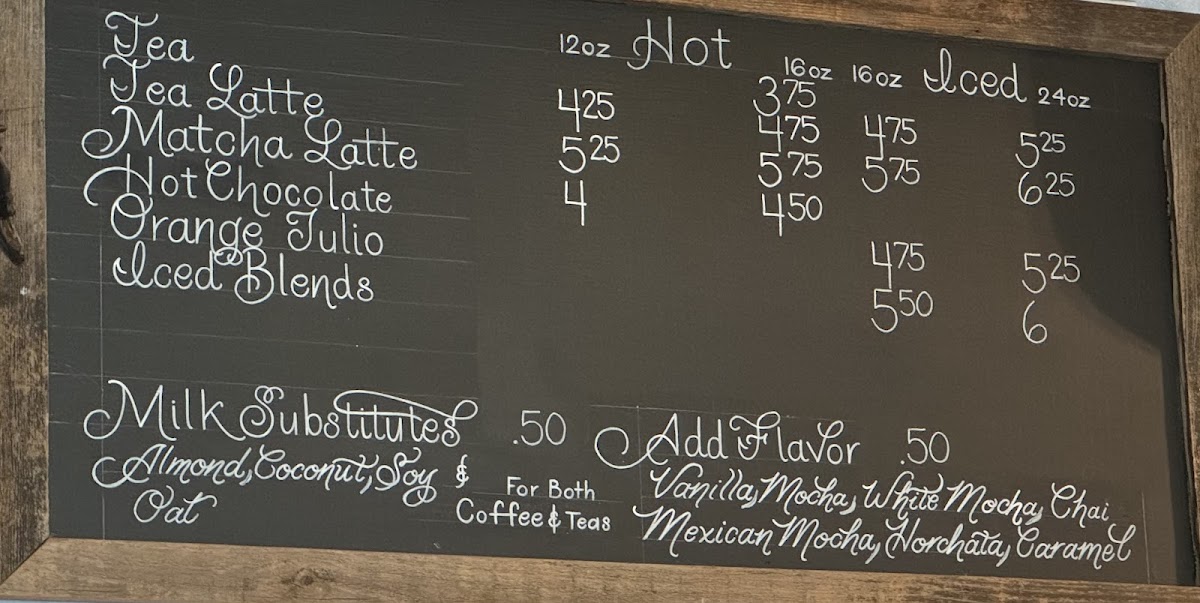 12oz Hot 16oz 16oz Iced 24oz
Tea 375
Tea Latte 425 475 475 525
Matcha Latte 525 575 575 625
Hot Chocolate 4 450
Orange Julio 475 525
Iced Blends 550 6
Milk Substitutes .50
Almond, Coconut, Soy &
Oat
For Both
Coffee & Teas
Add Flavor .50
Vanilla, Mocha, White Mocha, Chai
Mexican Mocha, Horchata, Caramel